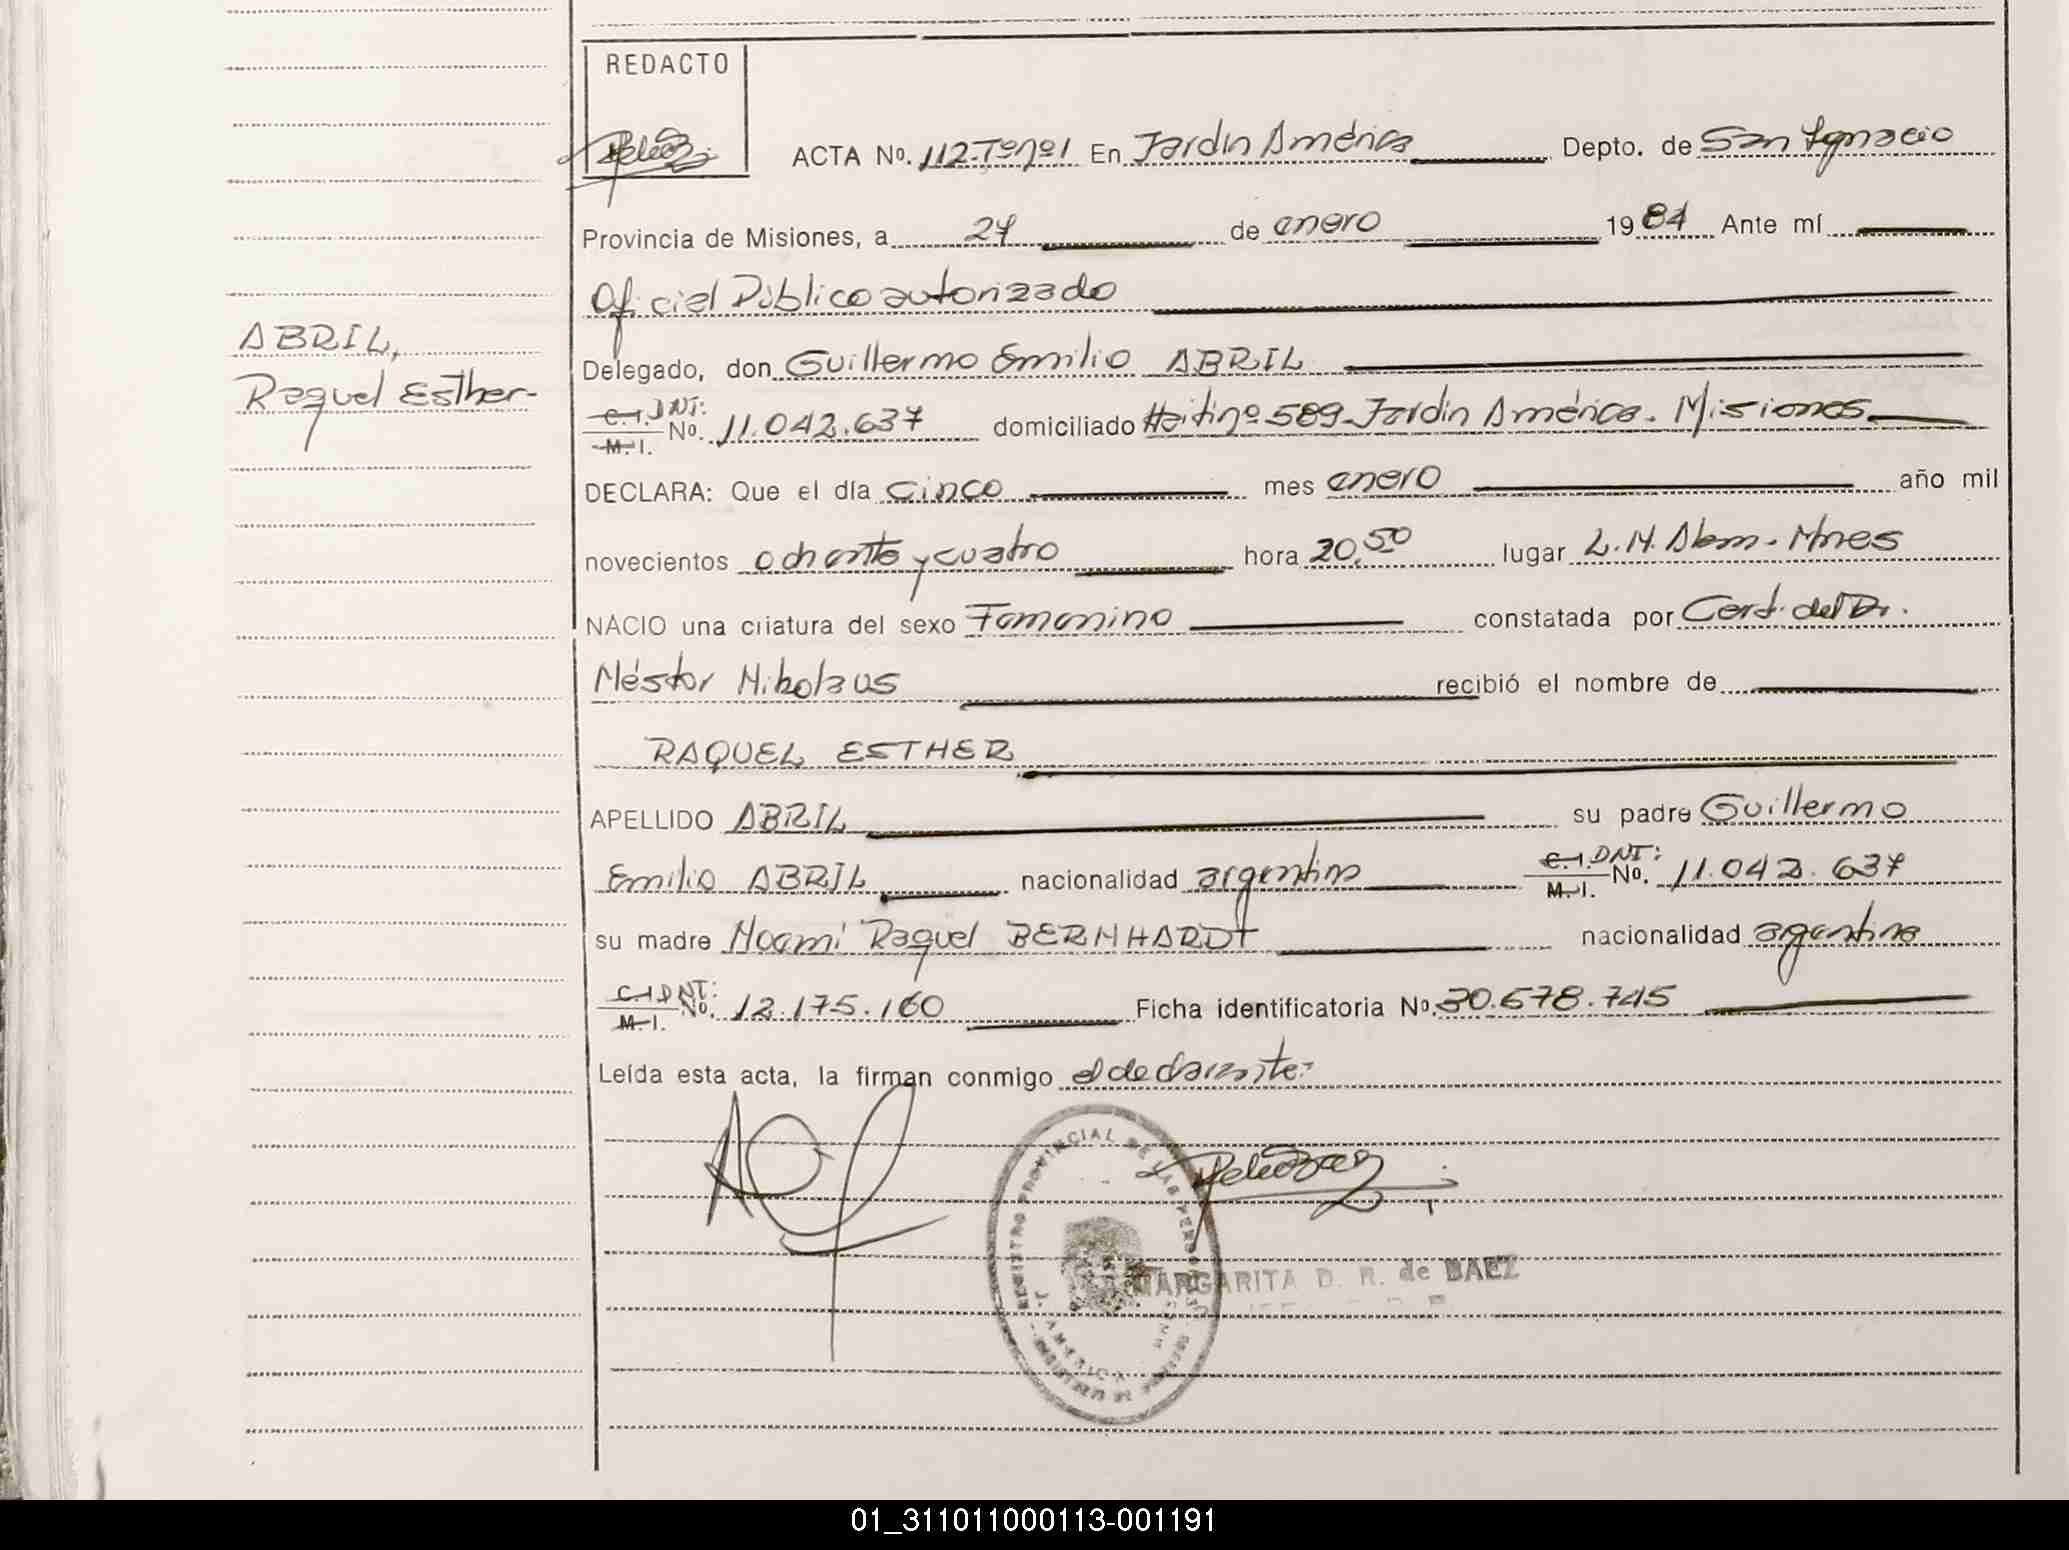 REDACTO
ACTA No. 112-Tonº1 En Jardín América Depto. de San Ignacio
Provincia de Misiones, a 27 de enero 1984 Ante mí
Oficial Público autorizado
Delegado, don Guillermo Emilio ABRIL
ABRIL,
Raquel Esther-
C.I. DNI: M.I. No. 11.042.637 domiciliado Haití nº 589-Jardín América. Misiones
DECLARA: Que el día cinco mes enero año mil
novecientos ochenta y cuatro hora 20,50 lugar L.N.Alem-Mnes
NACIO una criatura del sexo Femenino constatada por Cert. del Dr.
Néstor Nikolaus recibió el nombre de
RAQUEL ESTHER
APELLIDO ABRIL su padre Guillermo
Emilio ABRIL nacionalidad argentina C.I. DNI: M.I. No. 11.042.637
su madre Noemí Raquel BERNHARDT nacionalidad argentina
C.I DNI: M.I. No. 12.175.160 Ficha identificatoria No. 30.678.745
Leída esta acta, la firman conmigo el declarante:
REGISTRO PROVINCIAL DE LAS PERSONAS
MARGARITA D. R. de BAEZ
01_311011000113-001191